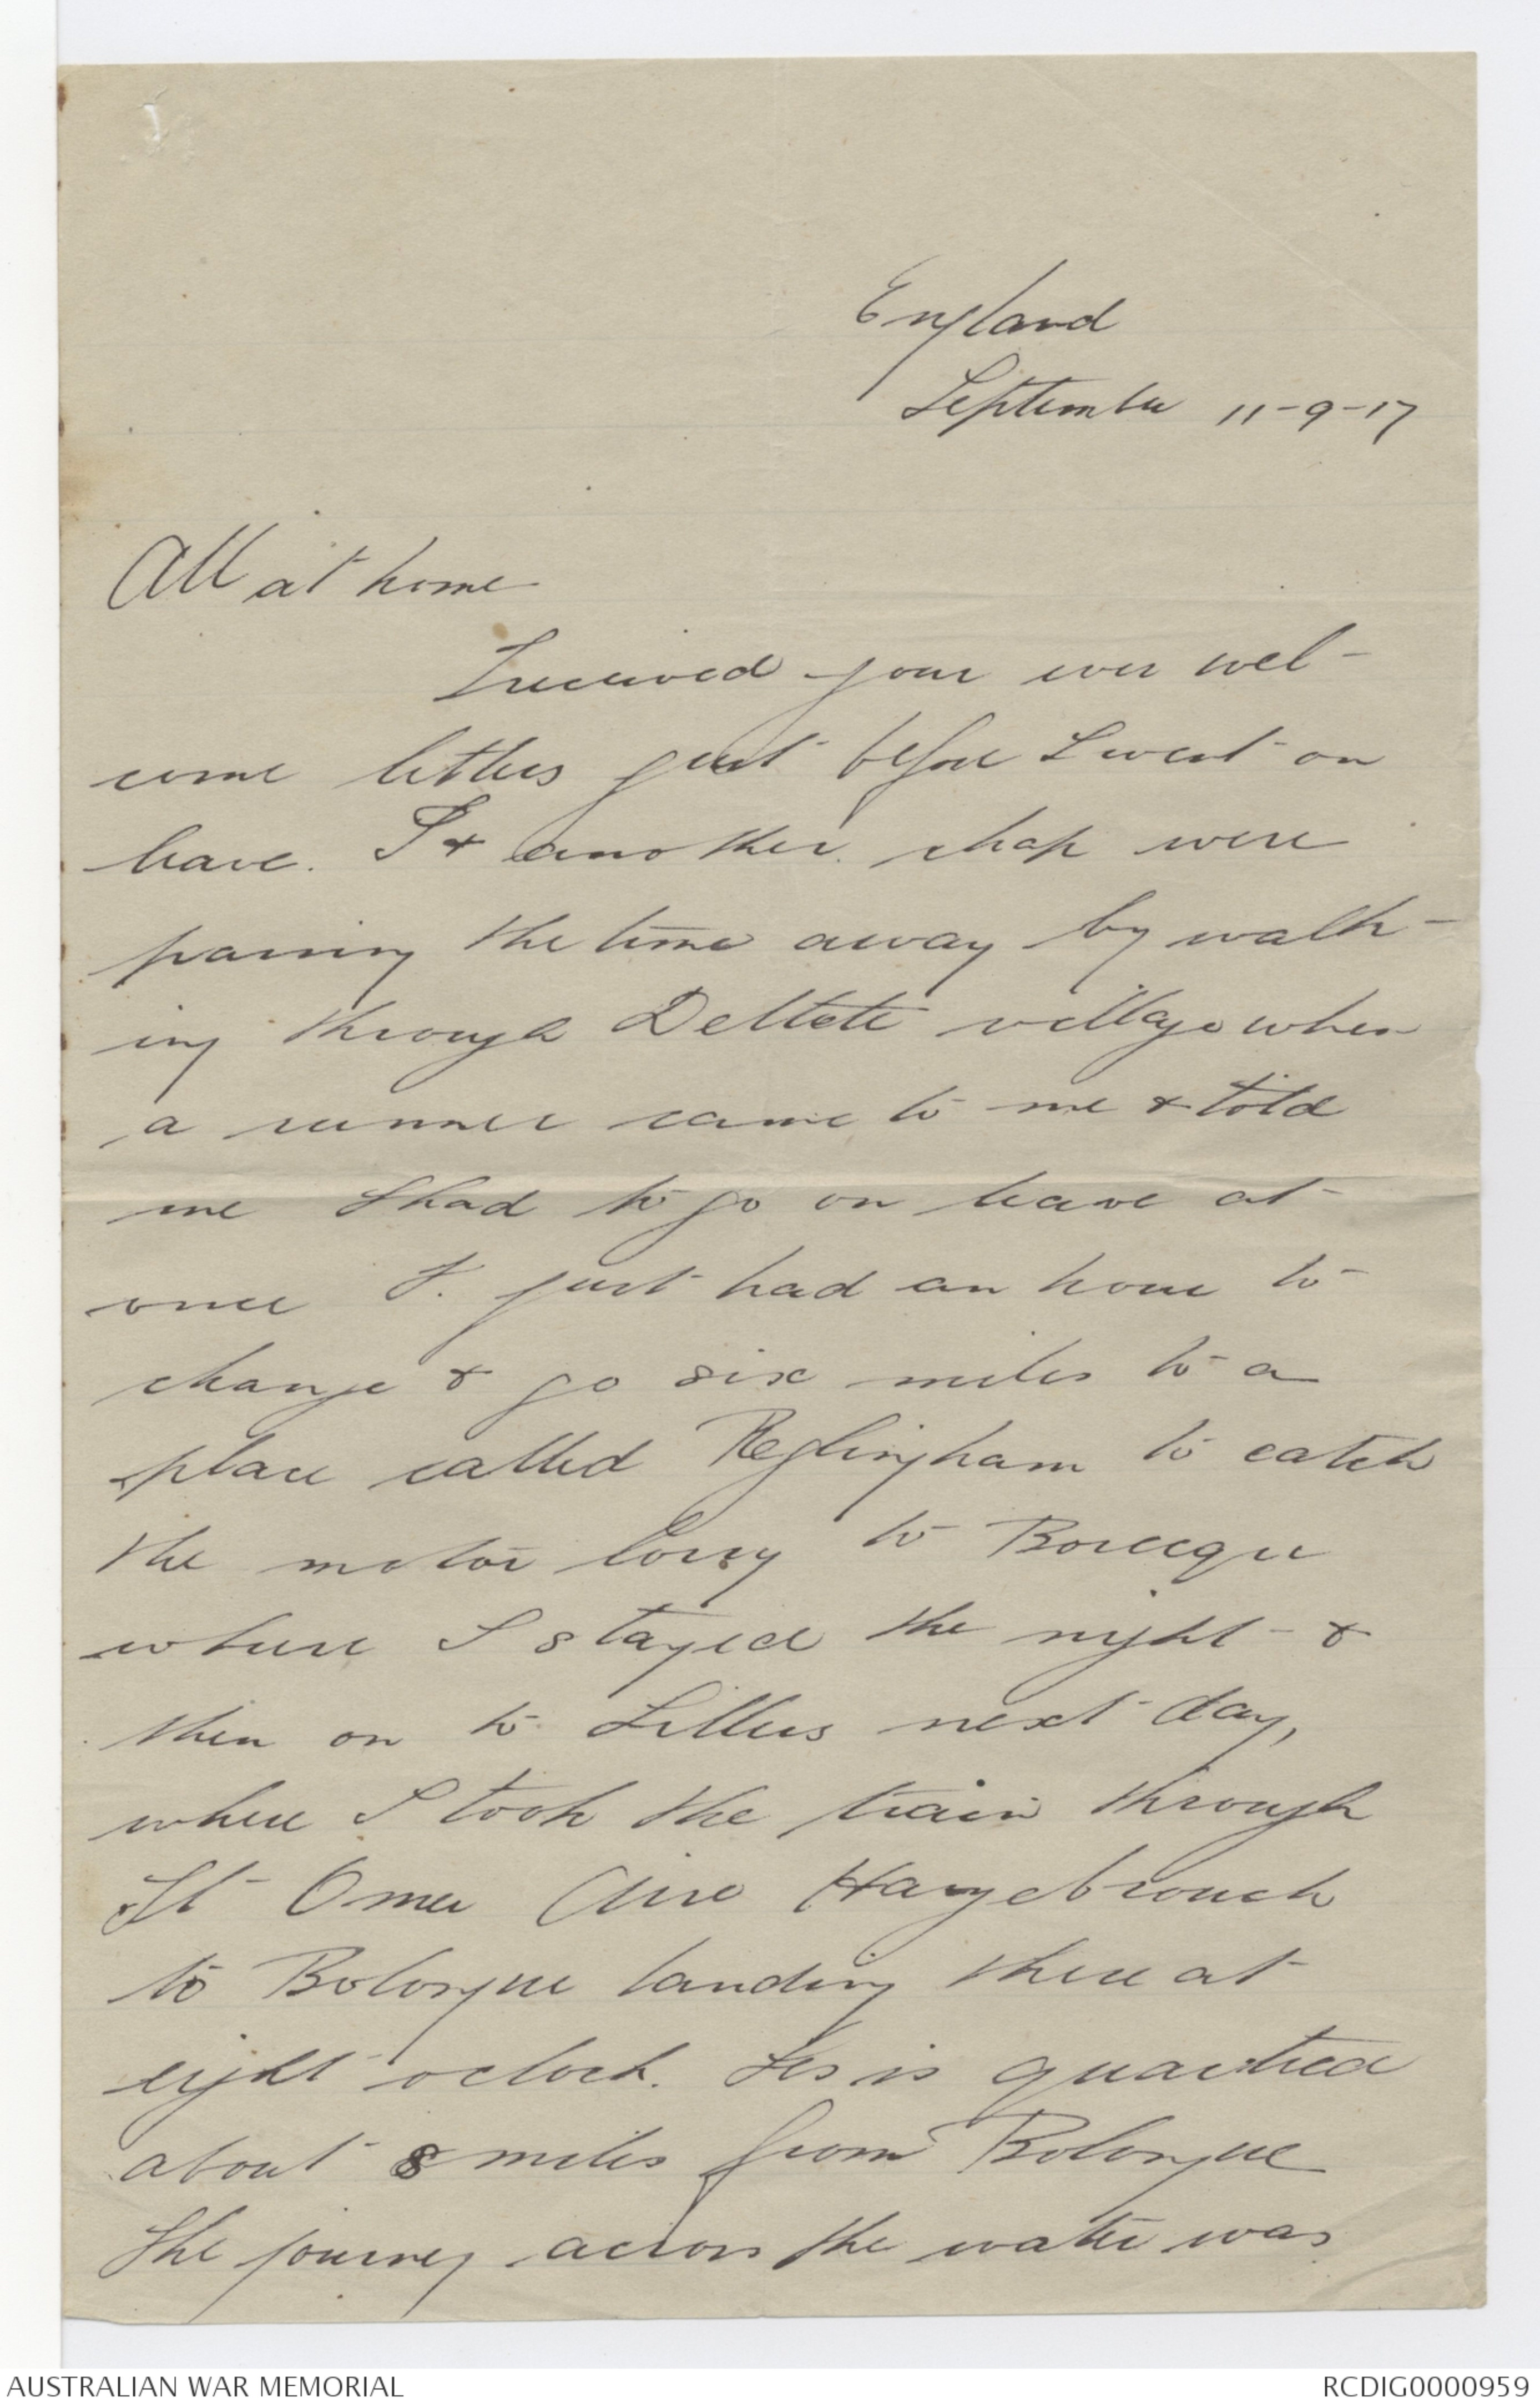 England
September 11-9-17
All at home
I received your ever wel-
come letters just before I went on
leave. I & another chap were
passing the time away by walk-
ing through Delttete village when
a runner came to me & told
me I had to go on leave at
once I. just had an hour to
change & go six miles to a
place called Reglingham to catch
the motor lorry to
where I stayed the night - &
then on to Lillers next day,
where I took the train through
St Omer Aire Hazebrouck
to Bolongue landing there at
eight oclock. Les is quartred
about 8 miles from Bolongue
The journey across the water was
AUSTRALIAN WAR MEMORIAL
RCDIG0000959